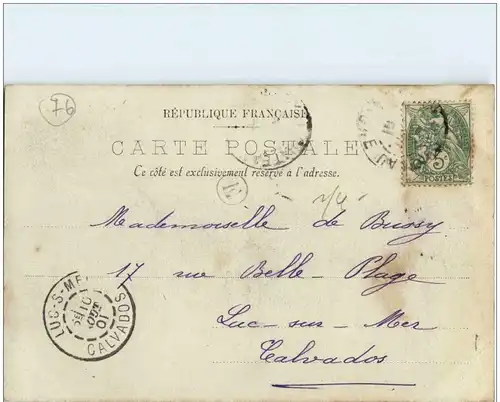 76
RÉPUBLIQUE FRANÇAISE
CARTE POSTALE
Ce côté est exclusivement réservé à l'adresse.
Mademoiselle de Bussy
17 rue Belle-Plage
Luc-sur-Mer
Calvados
LUC-S-MER
CALVADOS
POSTES